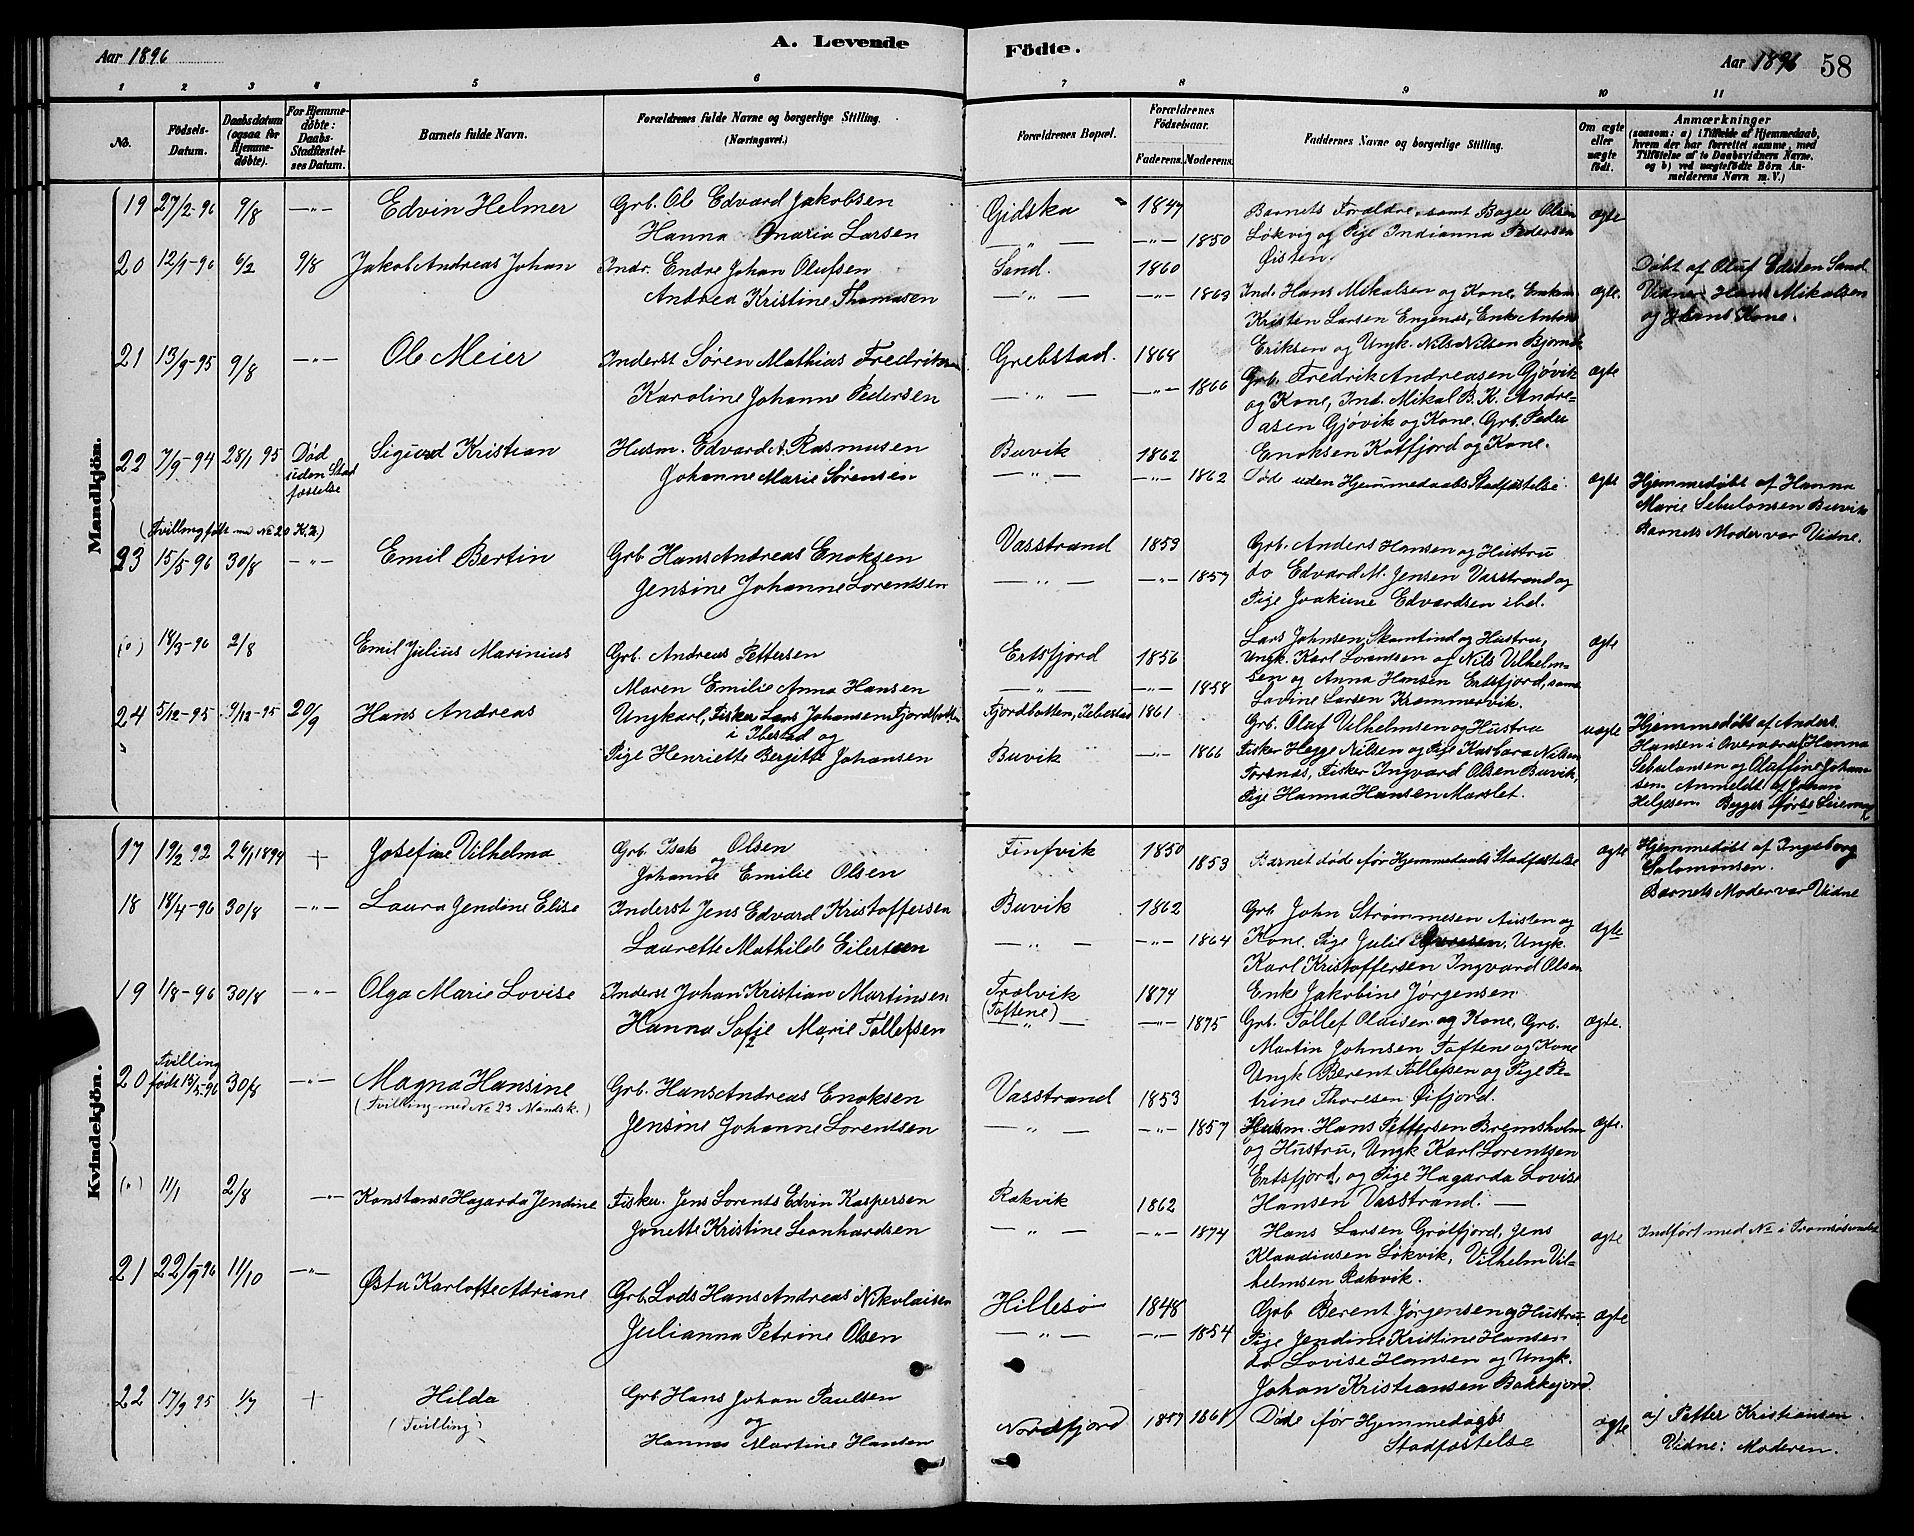 Aar 1896
A. Levende
Födte.
Aar 1896
58
1 2 3 4 5 6 7 8 9 10 11
No.
Födsels-Datum.
Daabsdatum (ogsaa for Hjemmedöbte).
For Hjemmedöbte: Daabs-Stadfæstelses Datum.
Barnets fulde Navn.
Forældrenes fulde Navne og borgerlige Stilling.
(Næringsvei.)
Forældrenes Bopæl.
Forældrenes Födselsaar.
Faderens. Moderens.
Faddernes Navne og borgerlige Stilling.
Om ægte eller uægte födt.
Anmærkninger
(saasom: a) i Tilfælde af Hjemmedaab, hvem der har forrettet samme, med Tilföielse af to Daabsvidners Navne. og b) ved uægtefödte Börn Anmelderens Navn m. V.)
Mandkjön.
19 27/2-96 9/8 —"— Edvin Helmer Grb. Ole Edvard Jakobsen Gidska 1847 Barnets Forældre, samt Olsen ægte
Hanna Maria Larsen —"— —"— 1850 Løkvig og Pige Indianna Pedersen
Øisten.
20 12/1-96 6/2 9/8 Jakob Andreas Johan Indr. Endre Johan Olufsen Sand. 1860 Døbt af Oluf Sand.
Andrea Kristine Thomasen —"— —"— 1863 Ind. Hans Mikalsen og Kone, ægte. Vidner Hans Mikalsen
Kristen Larsen Engenes, Enke og Hans Kone.
Eriksen og Ungk. Nils Nilsen
21 13/9-95 9/8 —"— Ole Meier Inderst Søren Mathias Fredriksen Grebstad. 1868
Karoline Johanne Pedersen —"— —"— 1866 Grb. Fredrik Andreasen Gjøvik ægte
og Kone, Ind. Mikal B. K. Andre-
asen Gjøvik og Kone, Grb. Peder
Enoksen Katfjord og Kone.
22 7/9-94 28/1 95 Død uden Stadfæstelse Sigurd Kristian Husm. Edvard A. Rasmusen Buvik 1862
Johanne Marie Sørensen —"— —"— 1862 Døde uden Hjemmedaabs Stadfæstelse. ægte Hjemmedøbt af Hanna
Marie Sebulonsen Buvik
Barnets Moder var Vidne.
(Tvilling født med No 20 K.k.)
23 15/5 96 30/8 —"— Emil Bertin Grb Hans Andreas Enoksen Vasstrand 1853 Grb. Anders Hansen og Hustru
Jensine Johanne Lorentsen —"— —"— 1857 do Edvard M. Jensen Vasstrand og
Pige Joakime Edvardsen ibd.
(o) 18/3-96 2/8 Emil Julius Marinius Grb. Andreas Pettersen Ertsfjord 1856 Lars Johnsen Skamtind og Hustru, ægte
Ungk. Karl Lorentsen og Nils Vilhelm-
Maren Emilie Anna Hansen —"— —"— 1858 sen og Anna Hansen Ertsfjord, samt
Lovine Larsen Krammervik.
24 5/12-95 9/12-95 20/9 Hans Andreas Ungkarl, Fisker Lars Johansen Fjordbotten Fjordbotten, Ibestad 1861 Grb. Oluf Vilhelmsen og Hustru uægte Hjemmedøbt af Anders
i Ibestad og
Pige Henriette Bergitte Johansen Buvik —"— 1866 Fisker Hegge Nilsen og Pige Nilsen Hansen i Overværelse Hanna
Torsnæs, Fisker Ingvard Olsen Buvik, Sebulonsen og Johan-
Pige Hanna Hansen Marslet. sen. Anmeldt af Johan
Helgesen. Begges første Leiermaal
Kvindekjön.
17 19/2 92 26/1 1894 + Josefine Vilhelma Grb Isak Olsen Finfvik 1850
og
Johanne Emilie Olsen 1853 Barnet døde før Hjemmedaabs Stadfæstelse ægte Hjemmedøbt af Ingeborg
Salomonsen.
Barnets Moder var Vidne
18 18/4-96 30/8 —"— Laura Jendine Elise Inderst Jens Edvard Kristoffersen Buvik 1862 Grb. John Strømmesen Austen og
Laurette Mathilde Eilertsen —"— —"— 1864 Kone, Pige Julie Ungk. ægte
Karl Kristoffersen Ingvard Olsen
19 1/8-96 30/8 —"— Olga Marie Lovise Inderst Johan Kristian Martinsen Trælvik (Toftene) 1874 Enke Jakobine Jørgensen
Hanna Sofie Marie Tollefsen —"— —"— 1875 Grb. Tollef Olaisen og Kone, Grb. ægte.
Martin Johnsen Toftene og Kone
Ungk Berent Tollefsen og Pige Pe-
trine Thoresen Øifjord.
20 Tvilling født 15/5-96 30/8 —"— Magna Hansine Grb. Hans Andreas Enoksen Vasstrand 1853
(Tvilling med No 23 Mandsk.)
Jensine Johanne Lorentsen —"— —"— 1857 Husm. Hans Pettersen Bremsholm ægte.
og Hustru, Ungk Karl Lorentsen
Ertsfjord, og Pige Hagarda Lovise
Hansen Vasstrand. —
(o) 11/1 2/8 —"— Konstanse Hagarda Jendine Fisker. Jens Lorents Edvin Kaspersen Rakvik 1862
Jonette Kristine Leonhardsen —"— 1874 Hans Larsen Grøtfjord, Jens ægte Indført med No i
Klaudiusen Løkvik, Vilhelm Vil-
helmsen Rakvik.
21 22/9-96 11/10 —"— Østa Karlotte Adriane Grb. Lods Hans Andreas Nikolaisen Hillesø 1848 Grb Berent Jørgensen og Hustru ægte
Julianna Petrine Olsen —"— —"— 1854 Pige Jendine Kristine Hansen
do Lovise Hansen og Ungk.
Johan Kristiansen Bakkejord.
22 17/9 95 1/7 + Hilda Grb Hans Johan Paulsen Nordfjord 1857 1861 Døde før Hjemmedaabs ægte a) Petter Kristiansen.
(Tvilling) og
Hanna Martine Hansen Stadfæstelse Vidne: Moderen.